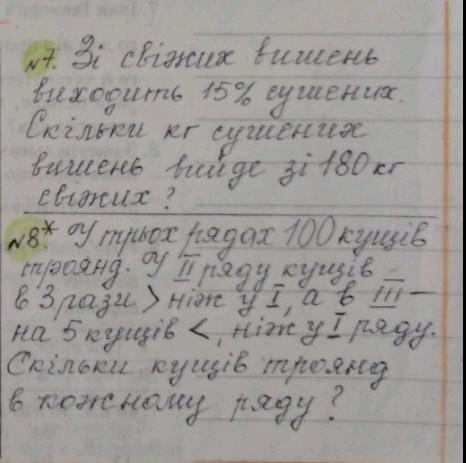 №7. Зі свіжих вишень
виходить 15% сушених.
Скільки кг сушених
вишень вийде зі 180 кг
свіжих?
№8*. У трьох рядах 100 кущів
троянд. У II ряду кущів
в 3 рази > ніж у I, а в III –
на 5 кущів <, ніж у I ряду.
Скільки кущів троянд
в кожному ряду?